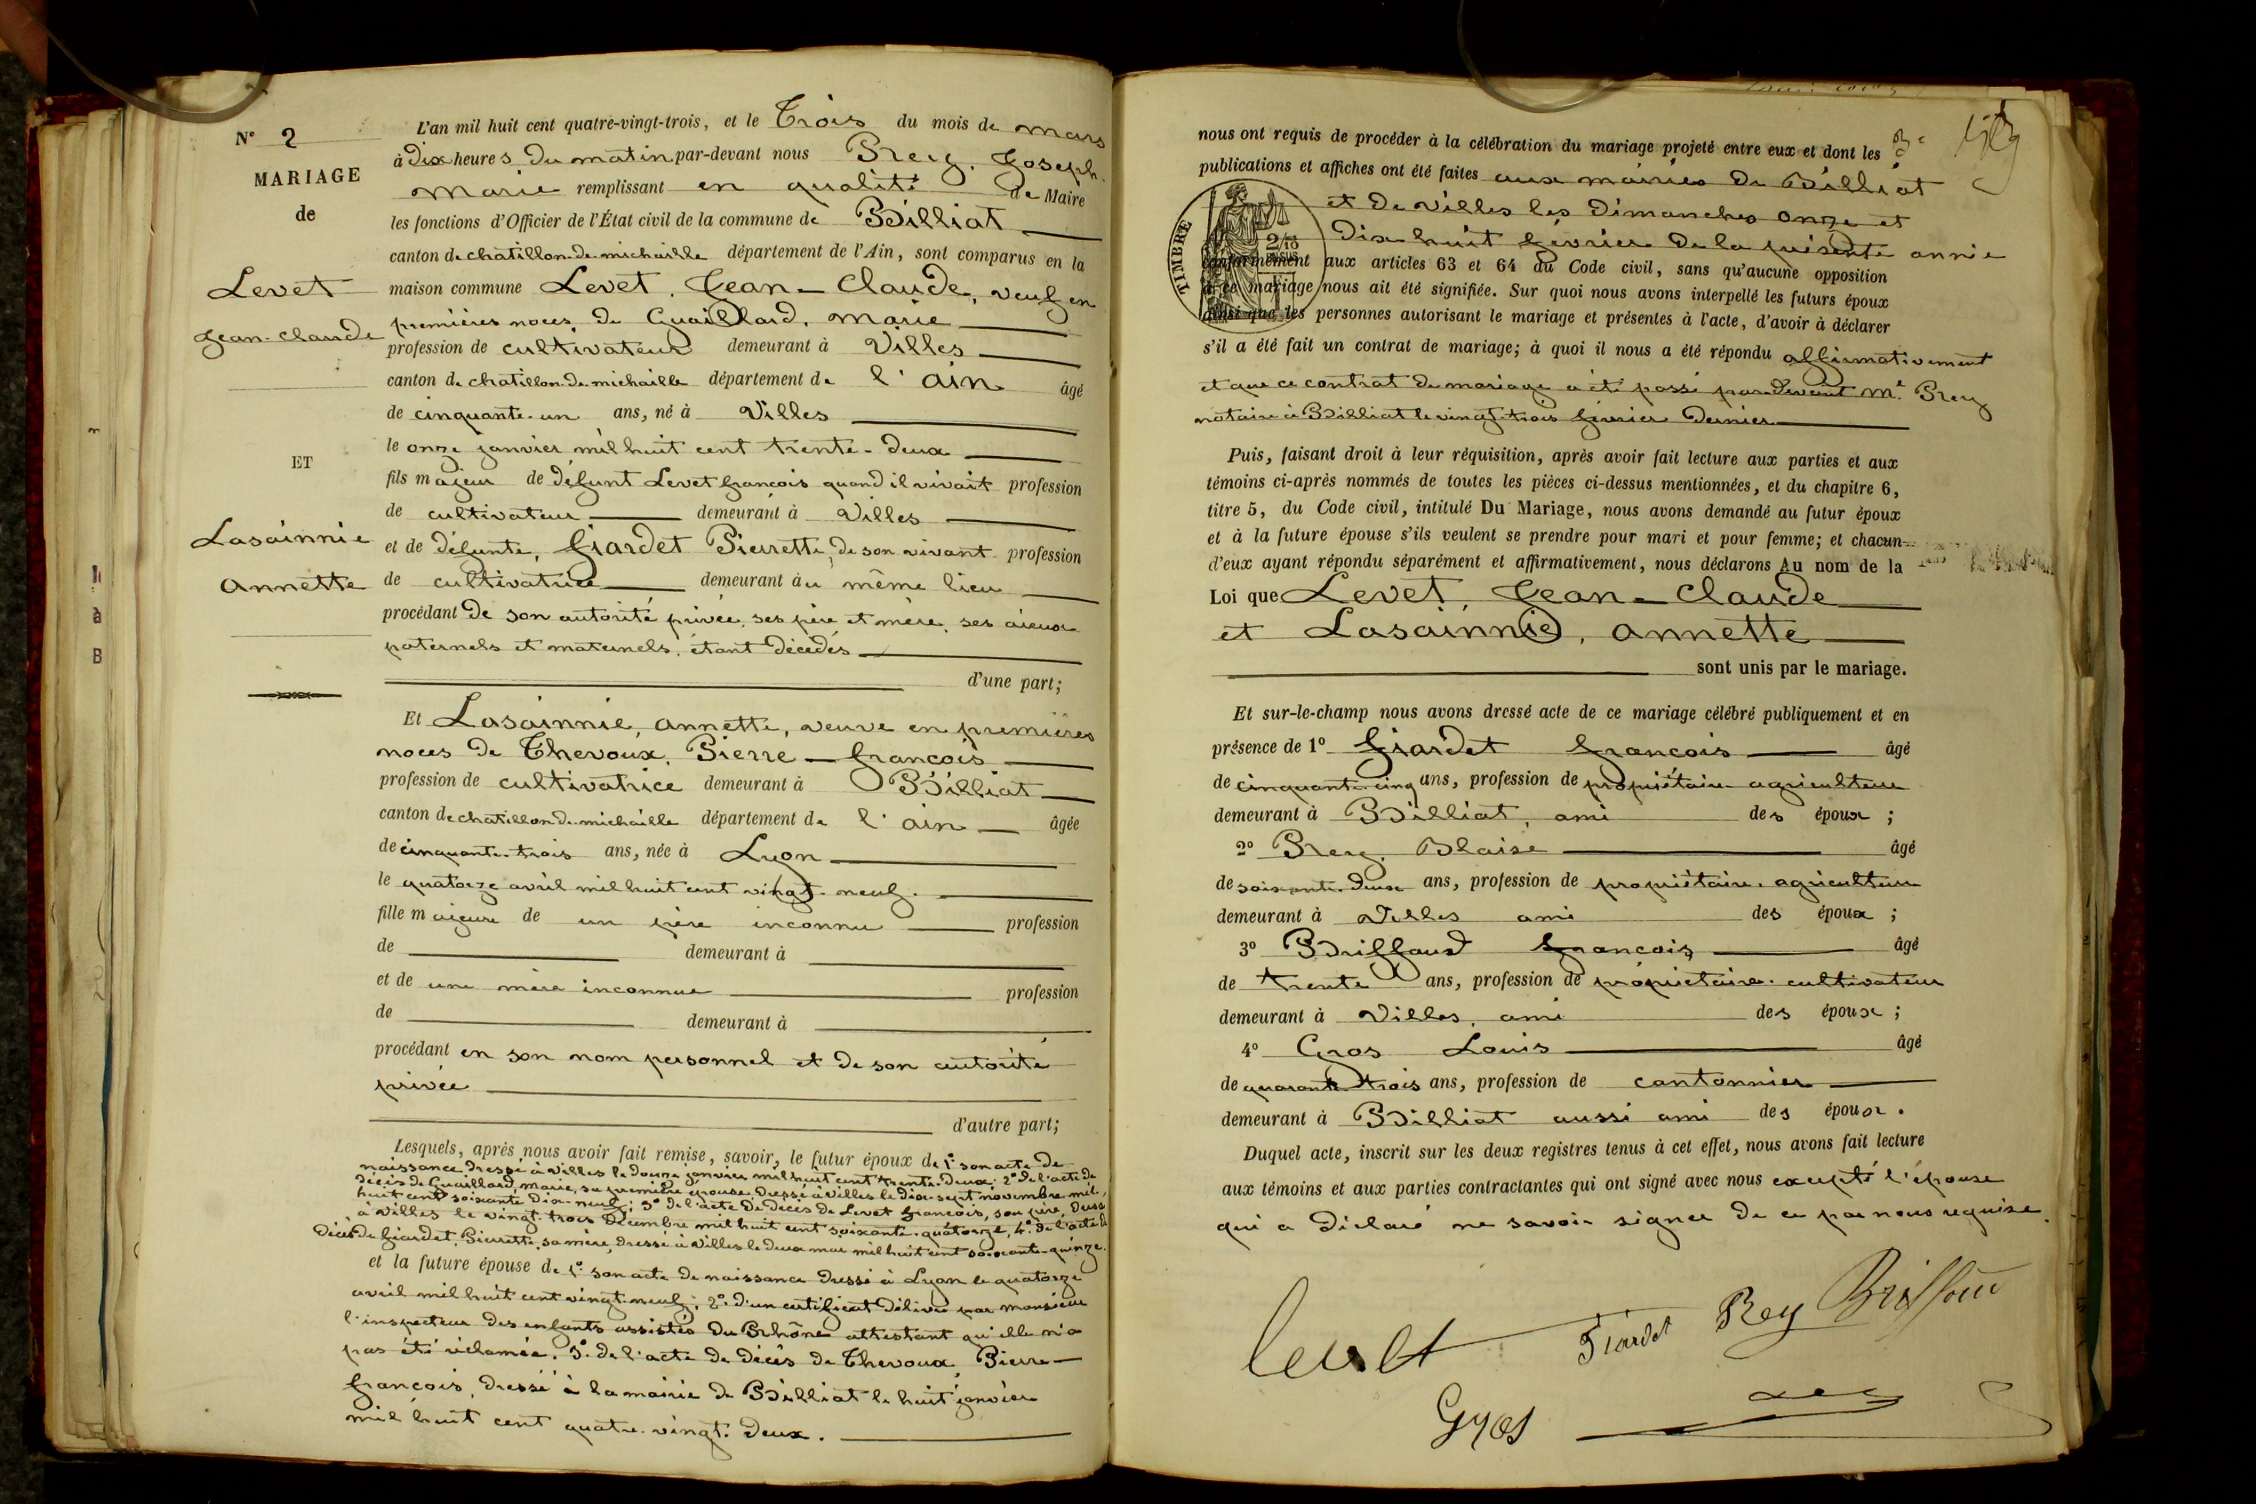 N° 2
MARIAGE
de
Levet
Jean-Claude
ET
Lasainnie
Annette
L'an mil huit cent quatre-vingt-trois, et le Trois du mois de mars
à dix heures du matin par-devant nous Prey, Joseph
Marie remplissant en qualité de Maire
les fonctions d'Officier de l'État civil de la commune de Billiat
canton de chatillon-de-michaille département de l'Ain, sont comparus en la
maison commune Levet, Jean-Claude, veuf en
premières noces de Guaillard, marie
profession de cultivateur demeurant à Villes
canton de chatillon-de-michaille département de l'ain âgé
de cinquante-un ans, né à Villes
le onze janvier mil huit cent trente-deux
fils majeur de défunt Levet françois quand il vivait profession
de cultivateur demeurant à Villes
et de défunte, Fiardet Pierrette, de son vivant profession
de cultivatrice demeurant au même lieu
procédant de son autorité privée, ses père et mère, ses aieux
paternels et maternels, étant décédés
d'une part;
Et Lasainnie, annette, veuve en premières
noces de Thevoux, Pierre-françois
profession de cultivatrice demeurant à Billiat
canton de chatillon-de-michaille département de l'ain âgée
de cinquante-trois ans, née à Lyon
le quatorze avril mil huit cent vingt-neuf.
fille majeure de un père inconnu profession
de demeurant à
et de une mère inconnue profession
de demeurant à
procédant en son nom personnel et de son autorité
privée
d'autre part;
Lesquels, après nous avoir fait remise, savoir, le futur époux de 1° son acte de
naissance dressé à Villes le douze janvier mil huit cent trente-deux; 2° de l'acte de
décès de Guaillard, Marie, sa première épouse dressé à Villes le dix-sept novembre mil-
huit cent soixante-dix-neuf; 3° de l'acte de décès de Levet françois, son père, dressé
à Villes le vingt-trois décembre mil huit cent soixante-quatorze, 4° de l'acte de
décès de Fiardet, Pierrette, sa mère, dressé à Villes le deux mars mil huit cent soixante-quinze.
et la future épouse de 1° son acte de naissance dressé à Lyon le quatorze
avril mil huit cent vingt-neuf; 2° d'un certificat délivré par monsieur
l'inspecteur des enfants assistés du Rhône attestant qu'elle n'a
pas été réclamée, 3° de l'acte de décès de Thevoux, Pierre-
françois, dressé à la mairie de Billiat le huit janvier
mil huit cent quatre-vingt-deux.
nous ont requis de procéder à la célébration du mariage projeté entre eux et dont les
publications et affiches ont été faites aux mairies de Billiat
et de Villes les dimanches onze et
dix-huit février de la présente année
TIMBRE
conformément aux articles 63 et 64 du Code civil, sans qu'aucune opposition
à ce mariage nous ait été signifiée. Sur quoi nous avons interpellé les futurs époux
ainsi que les personnes autorisant le mariage et présentes à l'acte, d'avoir à déclarer
s'il a été fait un contrat de mariage; à quoi il nous a été répondu affirmativement
et que ce contrat de mariage a été passé par-devant Me Prey
notaire à Billiat le vingt-trois février dernier
Puis, faisant droit à leur réquisition, après avoir fait lecture aux parties et aux
témoins ci-après nommés de toutes les pièces ci-dessus mentionnées, et du chapitre 6,
titre 5, du Code civil, intitulé Du Mariage, nous avons demandé au futur époux
et à la future épouse s'ils veulent se prendre pour mari et pour femme; et chacun
d'eux ayant répondu séparément et affirmativement, nous déclarons Au nom de la
Loi que Levet, Jean-Claude
et Lasainnie, annette
sont unis par le mariage.
Et sur-le-champ nous avons dressé acte de ce mariage célébré publiquement et en
présence de 1° Fiardet françois âgé
de cinquante-cinq ans, profession de propriétaire-agriculteur
demeurant à Billiat, ami des époux;
2° Prey, Blaise âgé
de soixante-deux ans, profession de propriétaire-agriculteur
demeurant à Villes ami des époux;
3° Briffaud françois, âgé
de trente ans, profession de propriétaire-cultivateur
demeurant à Villes, ami des époux;
4° Gros Louis âgé
de quarante-trois ans, profession de cantonnier
demeurant à Billiat aussi ami des époux.
Duquel acte, inscrit sur les deux registres tenus à cet effet, nous avons fait lecture
aux témoins et aux parties contractantes qui ont signé avec nous excepté l'épouse
qui a déclaré ne savoir signer de ce par nous requise.
Levet Fiardet Rey Briffaud
Gros